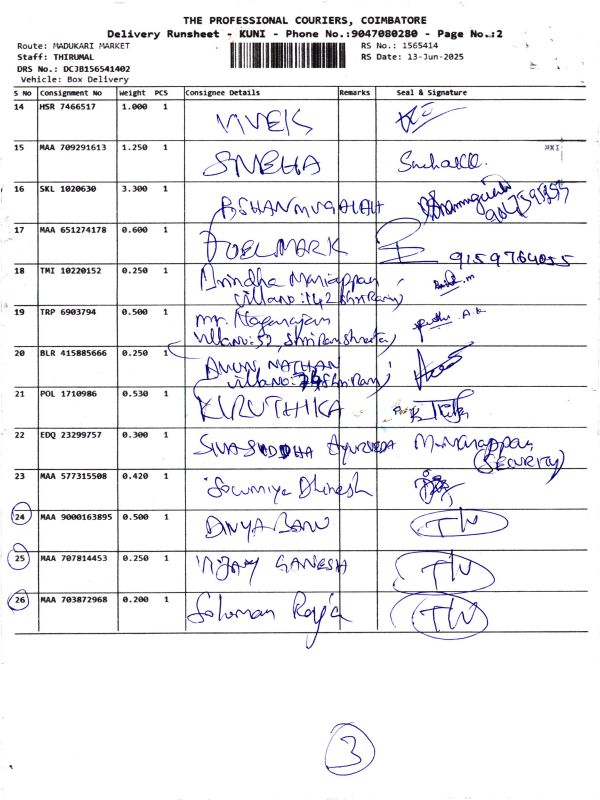 THE PROFESSIONAL COURIERS, COIMBATORE
Delivery Runsheet - KUNI - Phone No.:9047080280 - Page No.:2
Route: MADUKARI MARKET
RS No.: 1565414
Staff: THIRUMAL
RS Date: 13-Jun-2025
DRS No.: DCJB156541402
Vehicle: Box Delivery
S No Consignment No Weight PCS Consignee Details Remarks Seal & Signature
14 HSR 7466517 1.000 1 VIVEK
15 MAA 709291613 1.250 1 SNEHA
16 SKL 1020630 3.300 1 P.SHANMUGAIAH
17 MAA 651274178 0.600 1 FUELMARK 9159764055
18 TMI 10220152 0.250 1 Anindha Mariappan
villa no:142 shriRam
19 TRP 6903794 0.500 1 mr. Nagarajan
villa no:52, shriram
20 BLR 415885666 0.250 1 ARUN NATHAN
villa no: shriRam
21 POL 1710986 0.530 1 KIRUTHIKA
22 EDQ 23299757 0.300 1 SIVA SUDDHA AYURVEDA M.Marappan
(SECURITY)
23 MAA 577315508 0.420 1 Sowmiya Dhinesh
24 MAA 9000163895 0.500 1 DIVYA BANU TW
25 MAA 707814453 0.250 1 VIJAY GANESH TW
26 MAA 703872968 0.200 1 Soloman Raja TW
3